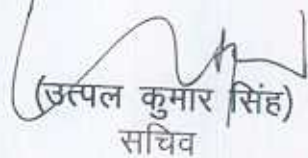 (उत्पल कुमार सिंह)
सचिव